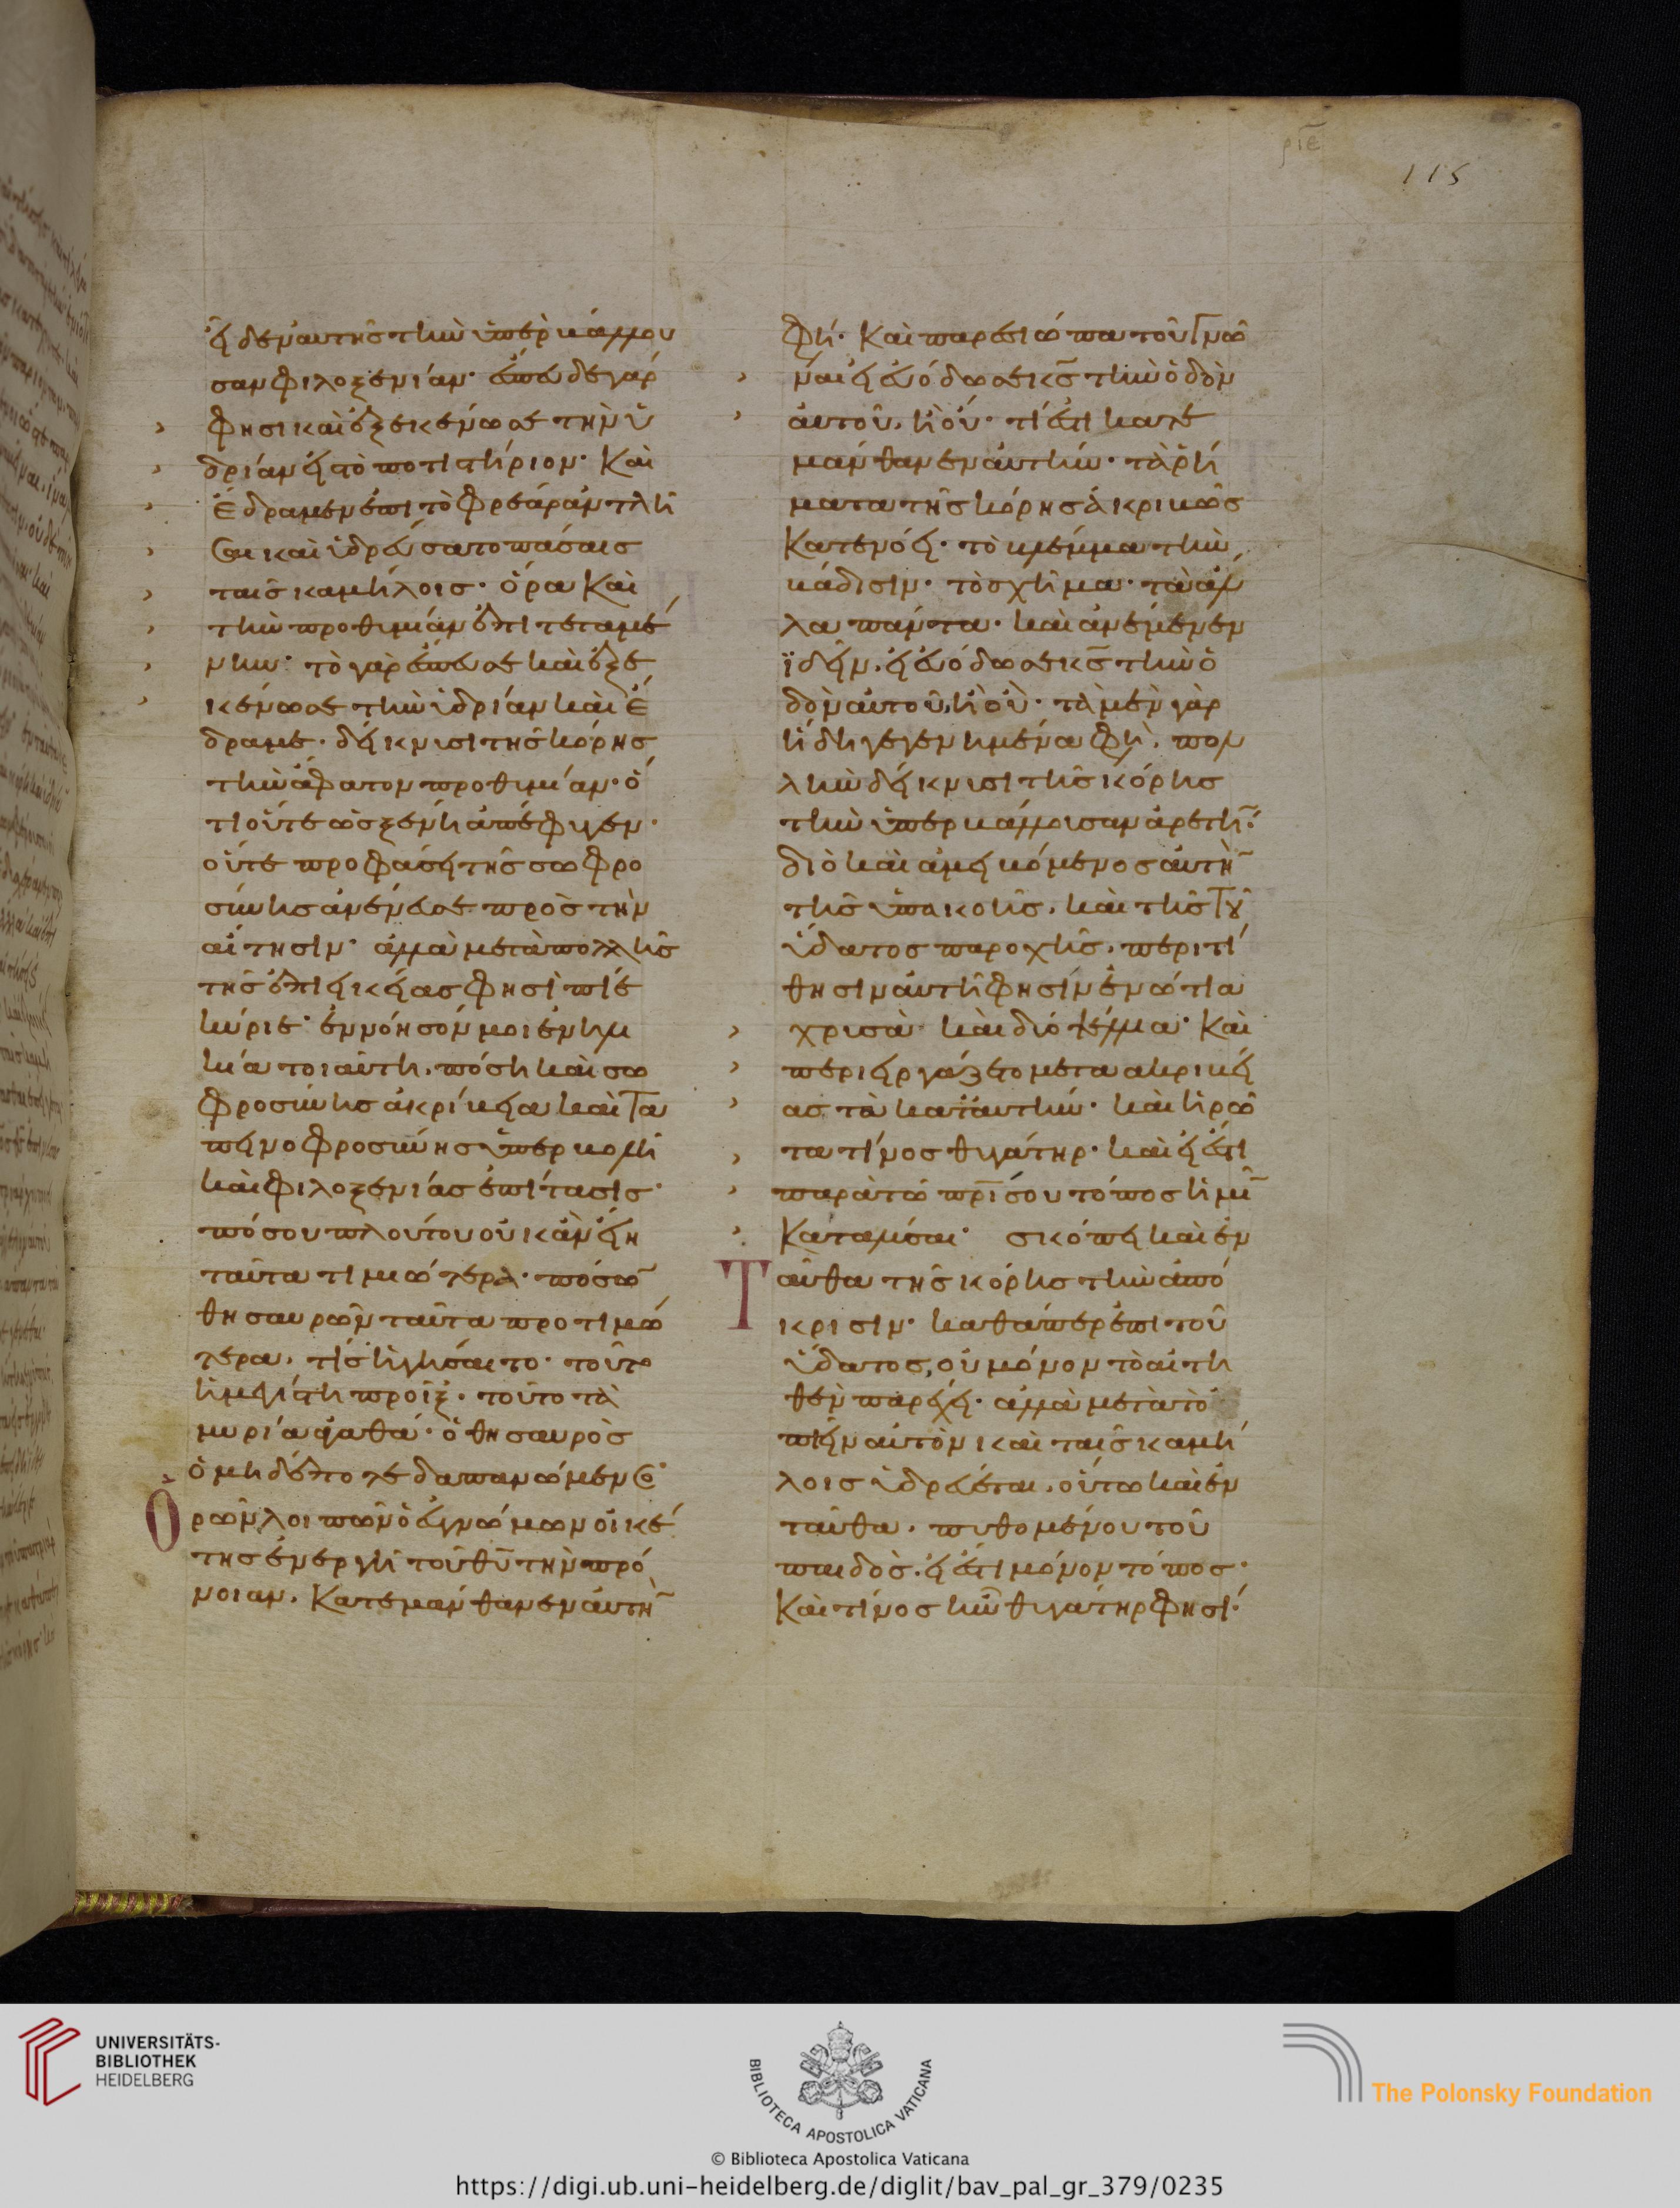 ριε
115
εἶδεν αὐτῆς τὴν ὑπερβάλλου
σαν φιλοξενίαν· ἔσπευδε γάρ
φησι καὶ ἐξεκένωσε τὴν ὑ
δρίαν εἰς τὸ ποτιστήριον· καὶ
ἔδραμεν ἐπὶ τὸ φρέαρ ἀντλῆ
σαι καὶ ὑδρεύσατο πάσαις
ταῖς καμήλοις· ὅρα καὶ
τὴν προθυμίαν ἐπιτεταμέ
νην· τὸ γὰρ ἔσπευσε καὶ ἐξε
κένωσε τὴν ὑδρίαν καὶ ἔ
δραμε· δείκνυσι τῆς κόρης
τὴν ἄφατον προθυμίαν· ὅ
τι οὔτε ὡς ξένη ἀπέφυγεν·
οὔτε προφάσει τῆς σωφρο
σύνης ἀνένευσε πρὸς τὴν
αἴτησιν· ἀλλὰ μετὰ πολλῆς
τῆς ἐπιεικείας φησὶ πίε
κύριε· ἐννόησόν μοι ἐν ἡλι
κία τοιαύτη, πόση καὶ σω
φροσύνης ἀκρίβεια καὶ τα
πεινοφροσύνης ὑπερβολὴ
καὶ φιλοξενίας ἐπίτασις·
πόσου πλούτου οὐκ ἂν εἴη
ταῦτα τιμιώτερα· πόσων
θησαυρῶν ταῦτα προτιμώ
τερα, τίς ἡγήσαιτο· τοῦτο
ἡ μεγίστη προῖξ· τοῦτο τὰ
μυρία ἀγαθά· ὁ θησαυρὸς
ὁ μηδέποτε δαπανώμενος·
Ὁρῶν λοιπὸν ὁ εὐγνώμων οἰκέ
της ἐναργῆ τοῦ θῡ τὴν πρό
νοιαν, κατεμάνθανεν αὐτὴν
φη· καὶ παρεσιώπα τοῦ γνῶ
ναι εἰ εὐόδωσε κ̄ς τὴν ὁδὸν
αὐτοῦ, ἢ οὔ· τί ἐστι κατε
μάνθανεν αὐτήν· τὰ ῥή
ματα τῆς κόρης ἀκριβῶς
κατενόει· τὸ βλέμμα τὴν
βάδισιν· τὸ σχῆμα· τὰ ἄλ
λα πάντα· καὶ ἀνέμενεν
ἰδεῖν, εἰ εὐόδωσε κ̄ς τὴν ὁ
δὸν αὐτοῦ, ἢ οὔ· τὰ μὲν γὰρ
ἤδη γεγενημένα φη, πολ
λὴν δείκνυσι τῆς κόρης
τὴν ὑπερβάλλουσαν ἀρετήν·
διὸ καὶ ἀμειβόμενος αὐτὴν
τῆς ὑπακοῆς, καὶ τῆς τοῦ
ὕδατος παροχῆς, περιτί
θησιν αὐτῆ φησὶν ἐνώτια
χρυσᾶ καὶ δύο ψέλλια· καὶ
περιειργάζετο μετὰ ακριβεί
ας τὰ κατ' αὐτήν· καὶ ἠρώ
τα τίνος θυγάτηρ· καὶ εἰ ἔστι
παρὰ τῶ πρ̄ί σου τόπος ἡμῖν
καταλῦσαι· σκόπει καὶ ἐν
Ταῦθα τῆς κόρης τὴν ἀπό
κρισιν· καθάπερ ἐπὶ τοῦ
ὕδατος, οὐ μόνον τὸ αἰτη
θὲν παρέχει· ἀλλὰ μετὰ τὸ
πιεῖν αὐτὸν καὶ ταῖς καμή
λοις ὑδρεύεται, οὕτω καὶ ἐν
ταῦθα, πυθομένου τοῦ
παιδὸς, εἰ ἔστι μόνον τόπος·
καὶ τίνος ἦν θυγάτηρ φησί·
UNIVERSITÄTS-
BIBLIOTHEK
HEIDELBERG
BIBLIOTECA APOSTOLICA VATICANA
The Polonsky Foundation
© Biblioteca Apostolica Vaticana
https://digi.ub.uni-heidelberg.de/diglit/bav_pal_gr_379/0235